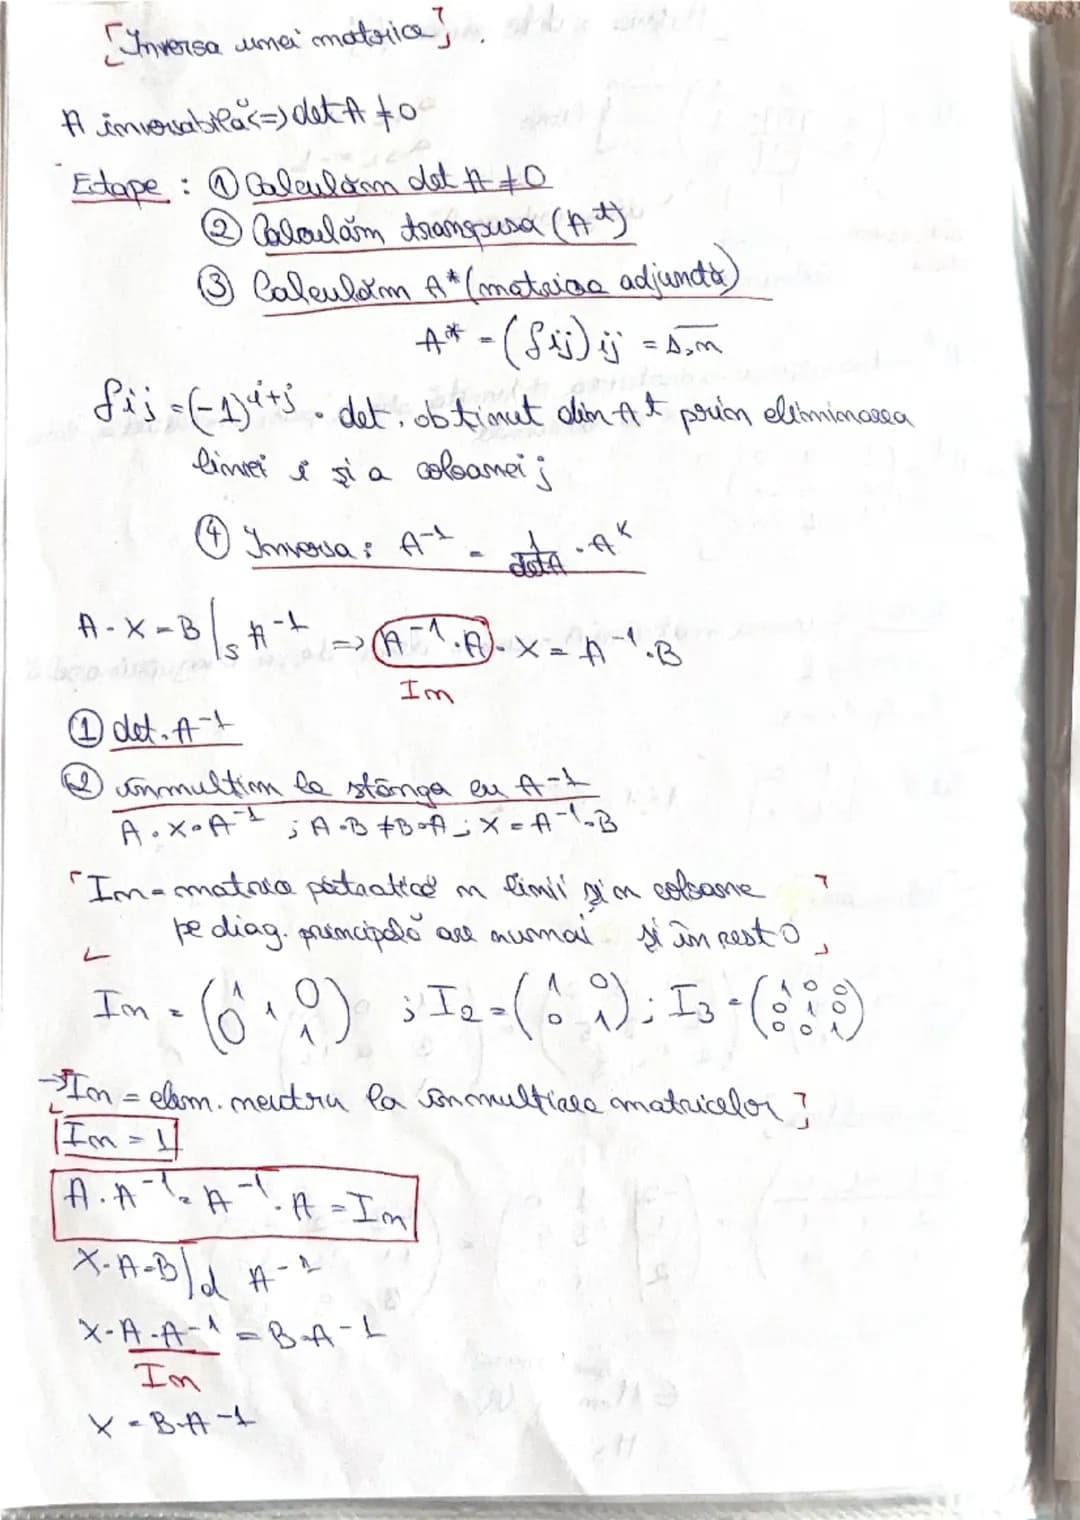 [Inversa unei matrice].
A inversabilă <=> det A ≠ 0
Etape : ① Calculăm det A ≠ 0
② Calculăm transpusa (Aᵗ)
③ Calculăm A* (matricea adjunctă)
A* = (δij) ij = 1,n
δij = (-1)^i+j · det. obținut din Aᵗ prin eliminarea
liniei i și a coloanei j
④ Inversa : A⁻¹ = 1/detA · A*
A · X = B |s A⁻¹ => (A⁻¹ · A) · X = A⁻¹ · B
In
① det. A⁻¹
② înmulțim la stânga cu A⁻¹
A · X · A⁻¹ ; A · B ≠ B · A ; X = A⁻¹ · B
[In = matrice pătratică n linii și n coloane
pe diag. principală are numai și în rest 0]
In = (1 0 1 0 1) ; I2 = (1 0 0 1) ; I3 = (1 0 0 0 1 0 0 0 1)
→[In = elem. neutru la înmulțirea matricelor]
In = 1
A · A⁻¹ = A⁻¹ · A = In
X · A = B |d A⁻¹
X · A · A⁻¹ = B · A⁻¹
In
X = B · A⁻¹